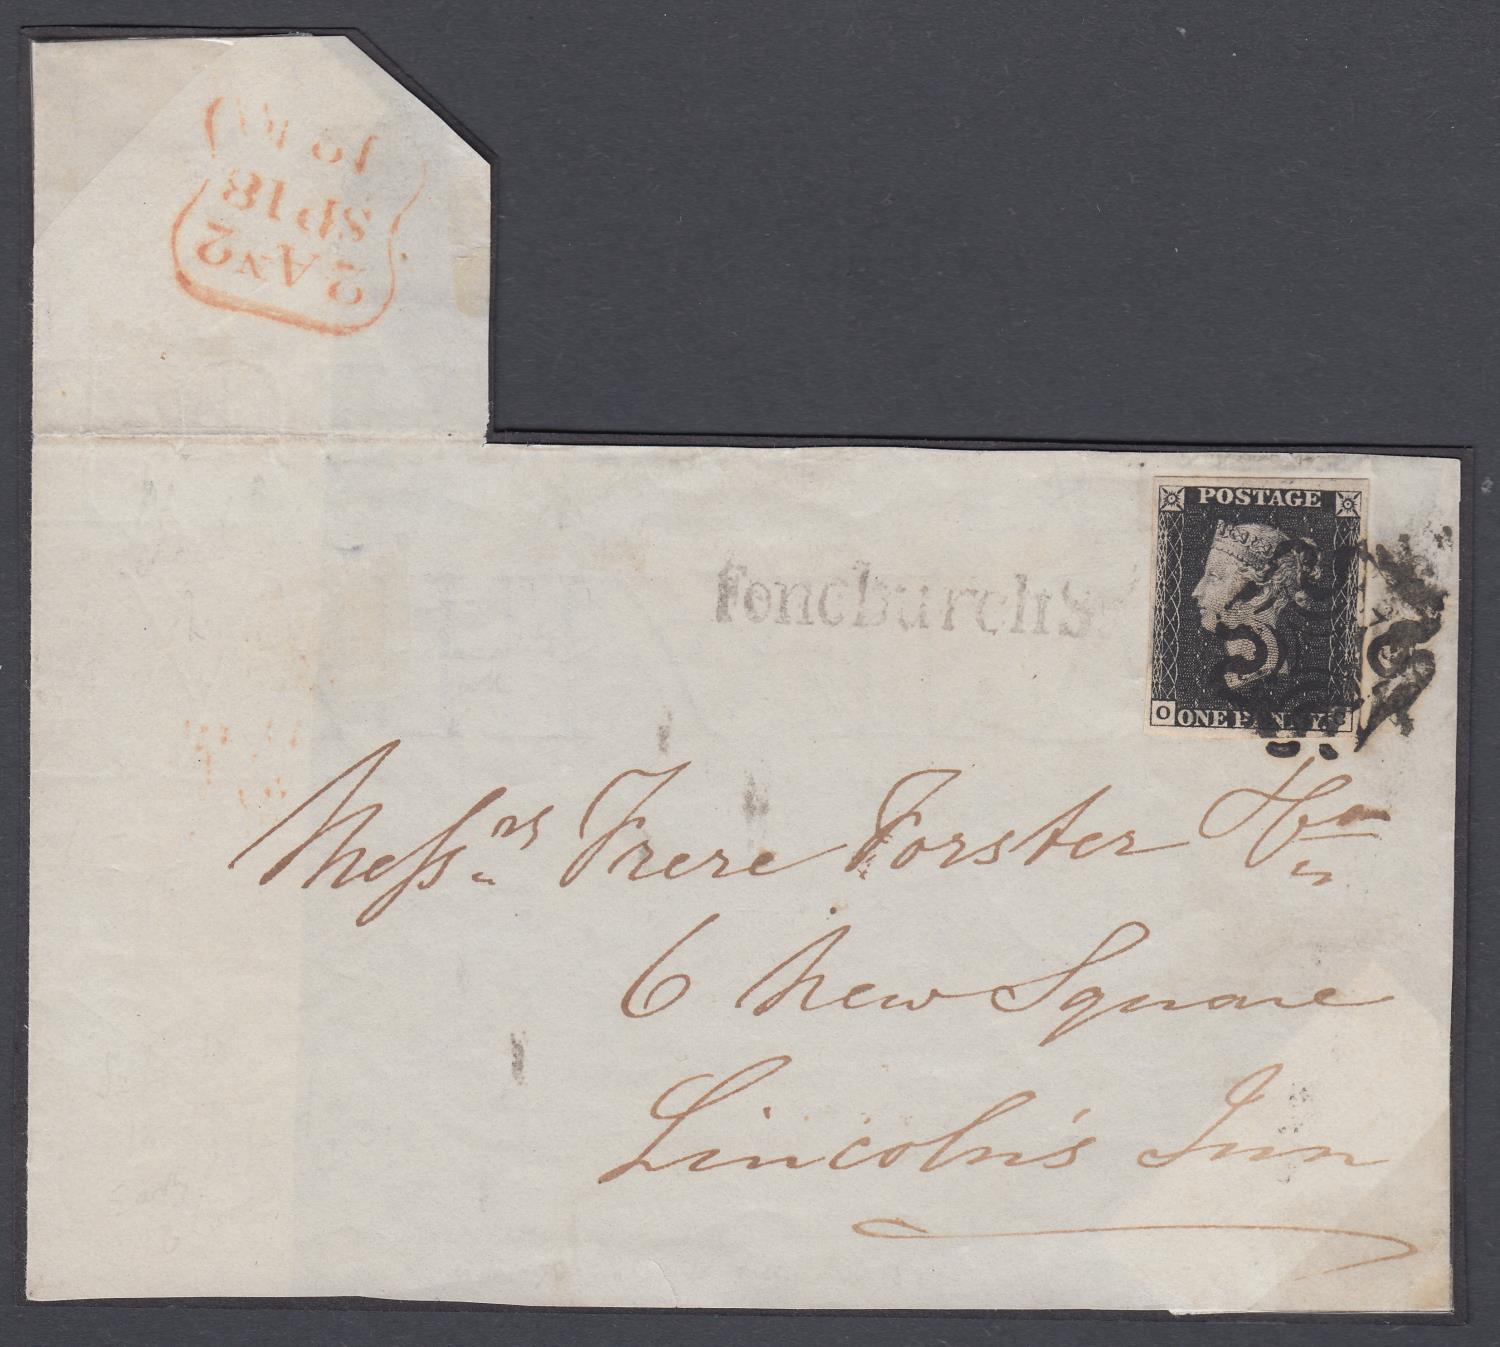 2 AN 2
SP 18
FenchurchSt
POSTAGE
O
ONE PENNY
Messrs. Frere Forster & Co
6 New Square
Lincoln's Inn